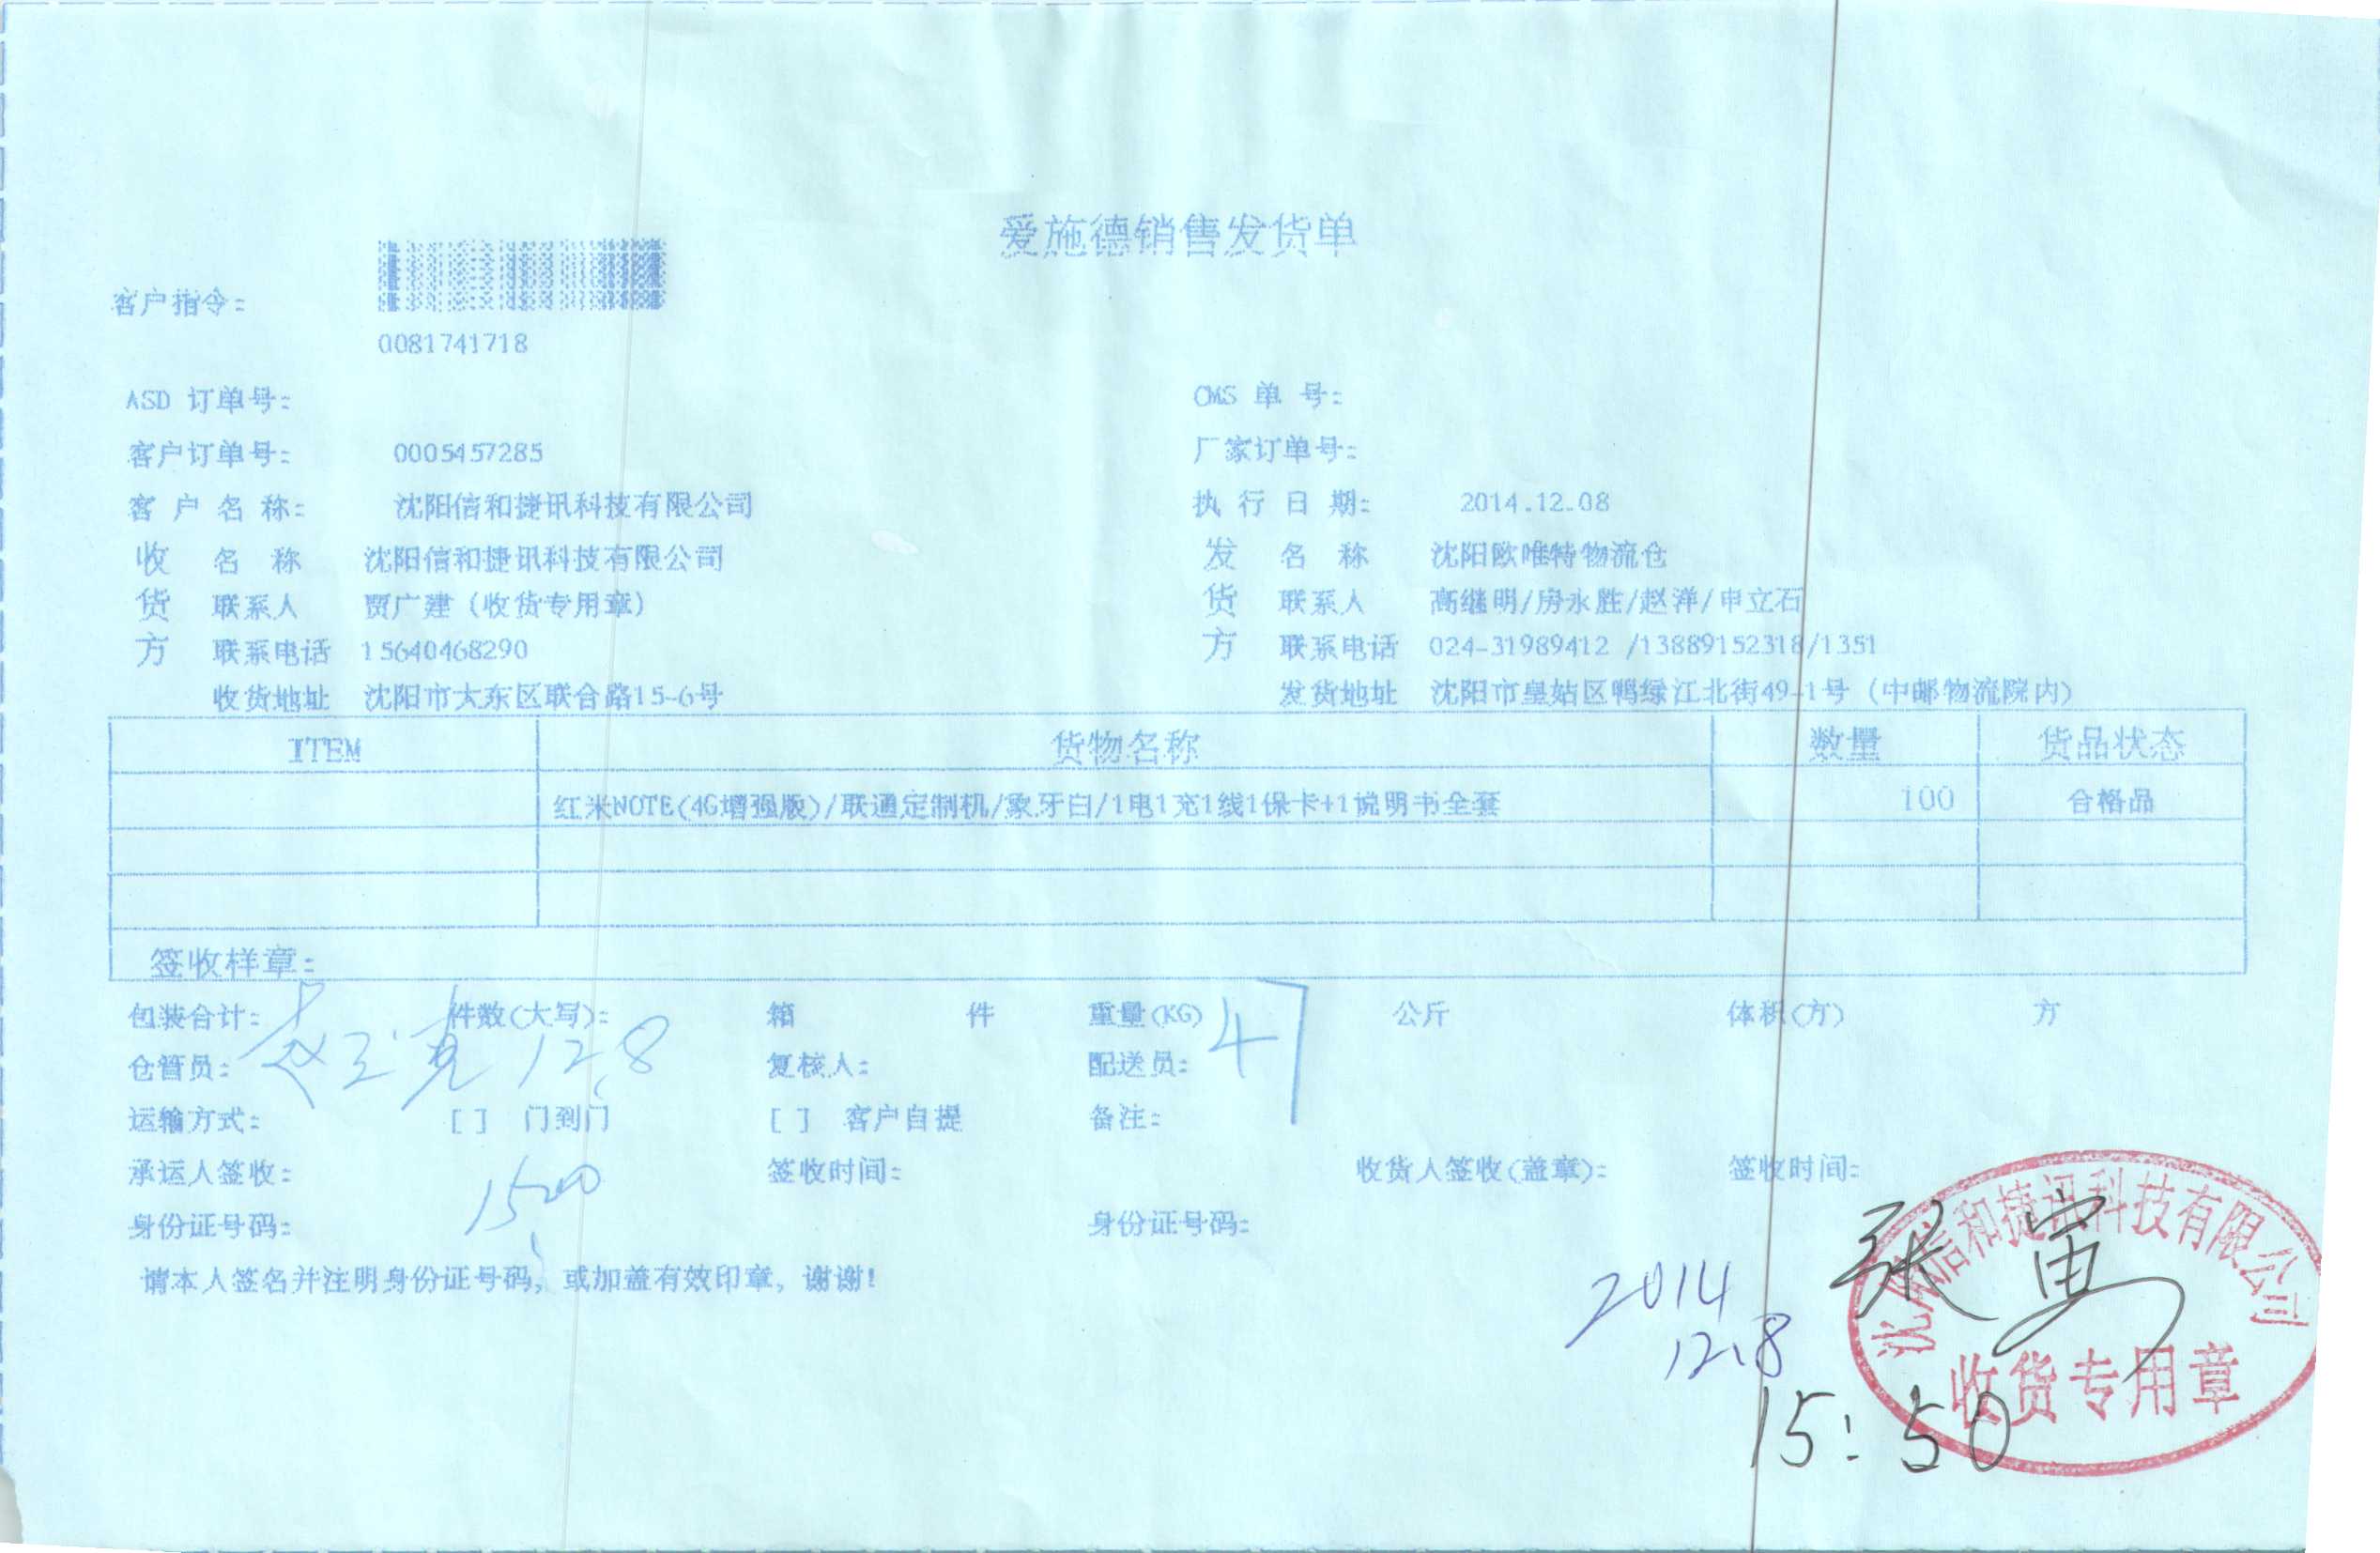 爱施德销售发货单
客户指令:
0081741718
ASD 订单号: CMS 单 号:
客户订单号: 0005457285 厂家订单号:
客 户 名 称: 沈阳信和捷讯科技有限公司 执 行 日 期: 2014.12.08
收 名 称 沈阳信和捷讯科技有限公司 发 名 称 沈阳欧唯特物流仓
货 联系人 贾广建(收货专用章) 货 联系人 高继明/房永胜/赵洋/申立石
方 联系电话 15640468290 方 联系电话 024-31989412 /13889152318/1351
收货地址 沈阳市大东区联合路15-6号 发货地址 沈阳市皇姑区鸭绿江北街49-1号(中邮物流院内)
ITEM 货物名称 数量 货品状态
红米NOTE(4G增强版)/联通定制机/象牙白/1电1充1线1保卡+1说明书全套 100 合格品
签收样章:
包装合计: 件数(大写): 箱 件 重量(KG) 47 公斤 体积(方) 方
仓管员: 12.8 复核人: 配送员:
运输方式: [ ] 门到门 [ ] 客户自提 备注:
承运人签收: 签收时间: 收货人签收(盖章): 签收时间:
身份证号码: 身份证号码:
请本人签名并注明身份证号码, 或加盖有效印章, 谢谢!
沈阳信和捷讯科技有限公司
收货专用章
2014
12.8
15:50